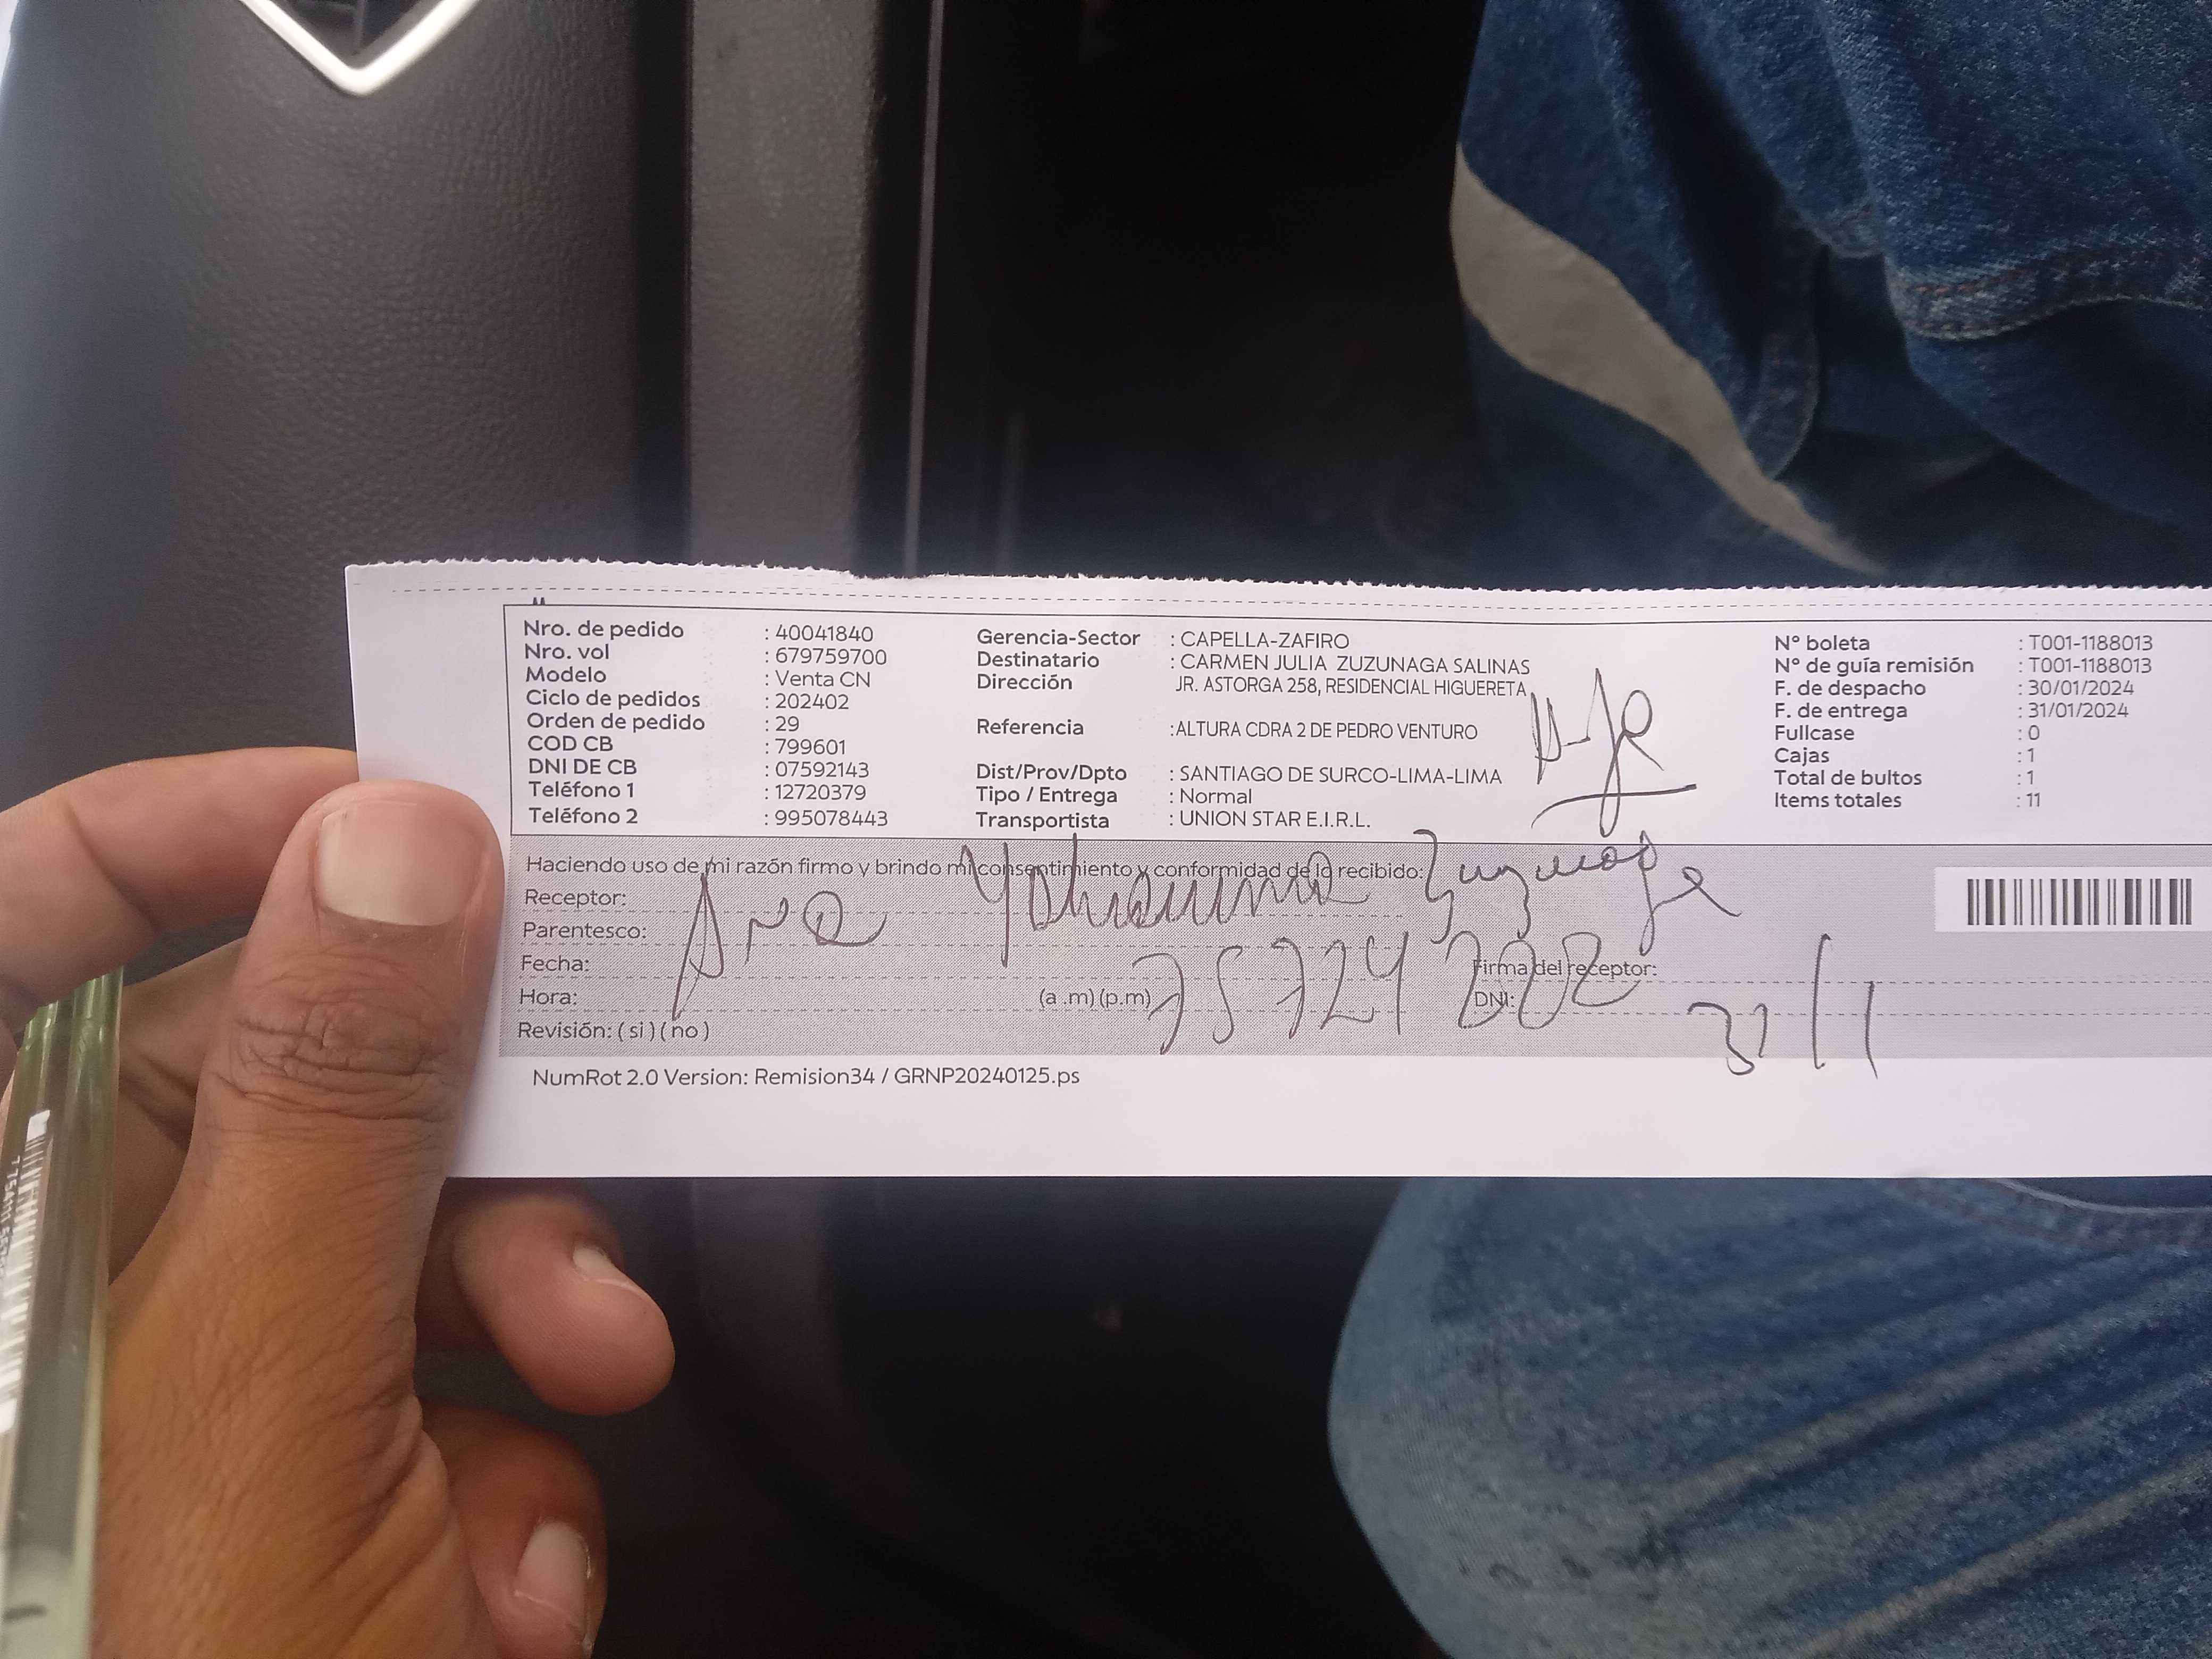 Nro. de pedido : 40041840
Nro. vol : 679759700
Modelo : Venta CN
Ciclo de pedidos : 202402
Orden de pedido : 29
COD CB : 799601
DNI DE CB : 07592143
Teléfono 1 : 12720379
Teléfono 2 : 995078443
Gerencia-Sector : CAPELLA-ZAFIRO
Destinatario : CARMEN JULIA ZUZUNAGA SALINAS
Dirección JR. ASTORGA 258, RESIDENCIAL HIGUERETA
Referencia :ALTURA CDRA 2 DE PEDRO VENTURO
Dist/Prov/Dpto : SANTIAGO DE SURCO-LIMA-LIMA
Tipo / Entrega : Normal
Transportista : UNION STAR E.I.R.L.
N° boleta : T001-1188013
N° de guía remisión : T001-1188013
F. de despacho : 30/01/2024
F. de entrega : 31/01/2024
Fullcase : 0
Cajas : 1
Total de bultos : 1
Items totales : 11
Haciendo uso de mi razón firmo y brindo mi consentimiento y conformidad de lo recibido:
Receptor:
Parentesco:
Fecha:
Hora: (a .m) (p.m)
Revisión: ( si ) ( no )
Ana Zuzunaga
Firma del receptor:
DNI:
31/1
NumRot 2.0 Version: Remision34 / GRNP20240125.ps